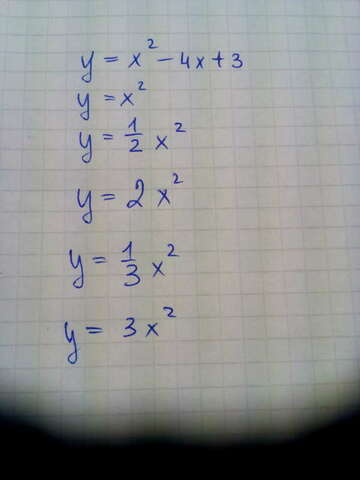 y = x² - 4x + 3
y = x²
y = 1/2 x²
y = 2x²
y = 1/3 x²
y = 3x²